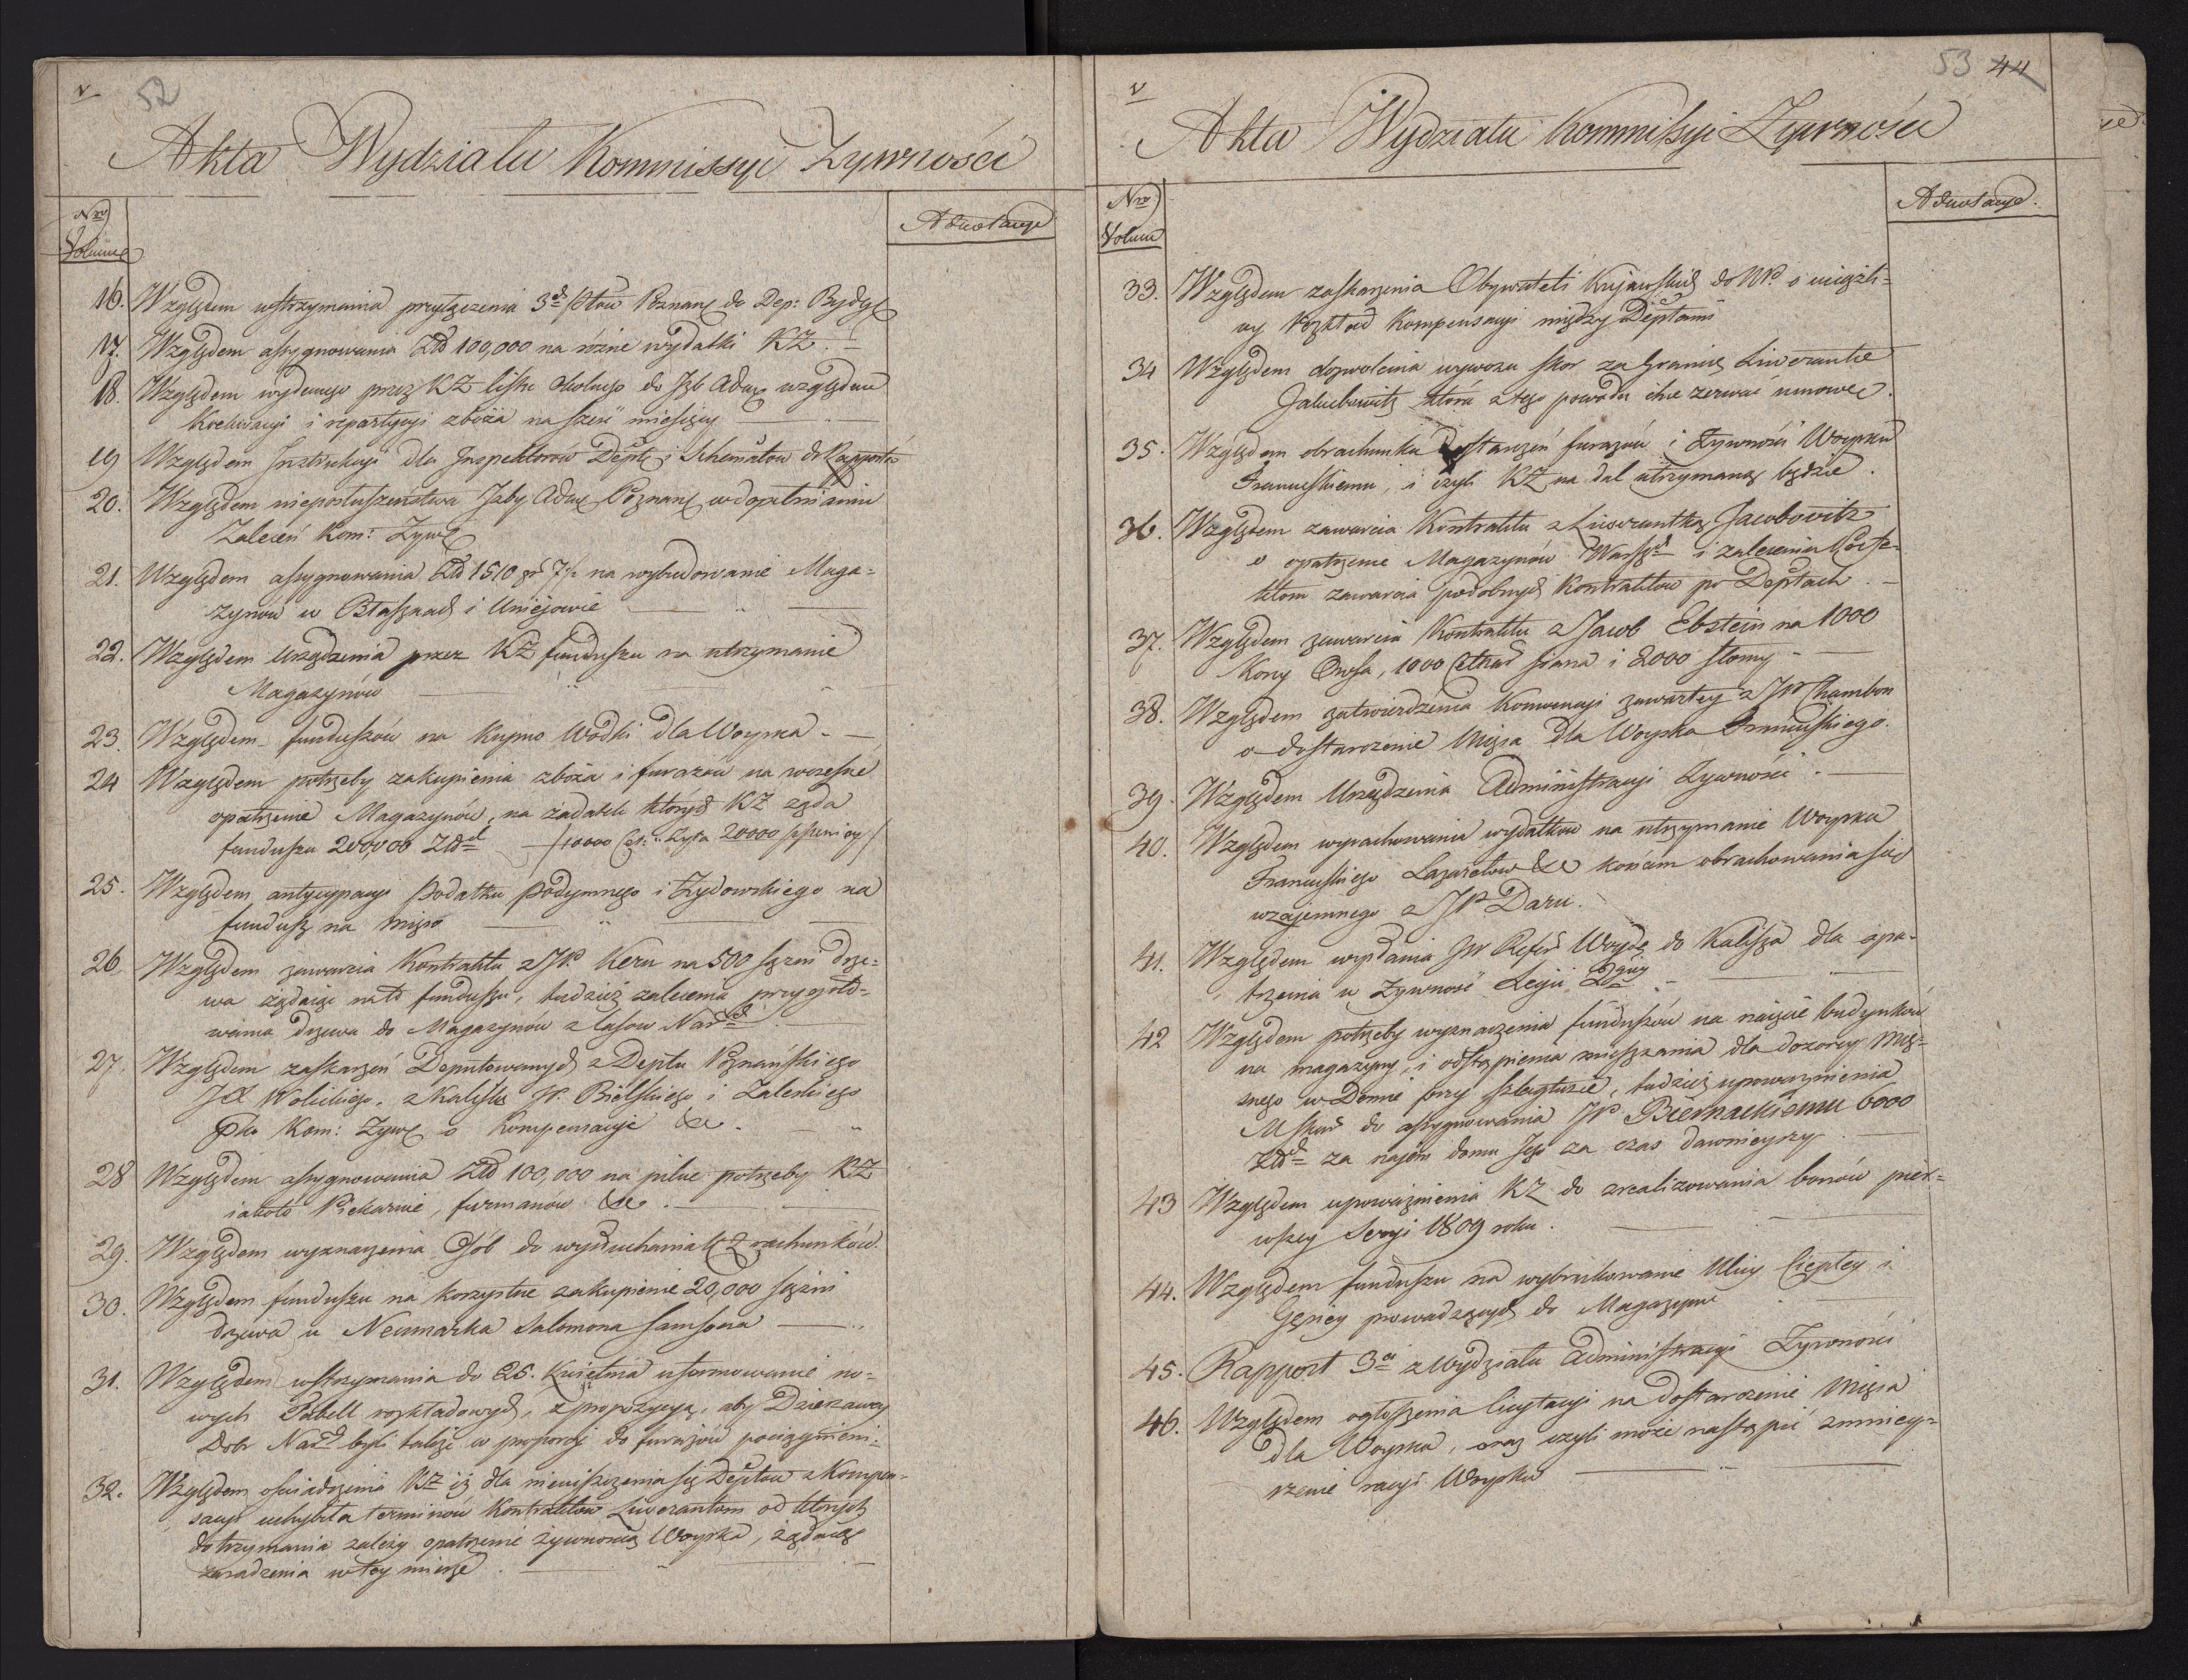 v
52
Akta Wydziału Kommissyi Żywności
Nro
Volumę
Adnotacye
16. Względem wstrzymania przyłączenia 3ch Ptów Poznanς do Dep: Bydgς
17. Względem assygnowania Złł 100,000 na różne wydatki KŻ.
18. Względem wydanego przez KŻ listu okolnego do Izb Admς względem
Rekwizycyi i repartycyi zboża na sześć miesięcy
19 Względem Instrukcyi dla Inspektorów Deptς i Schematów do Rapportu
20. Względem nieposłuszeństwa Izby Admς Poznanς w dopełnieniu
Zaleceń Kom: Żywς
21. Względem assygnowania Złł 1510 gr 7½ na wybudowanie Maga=
zynów w Błaszkach i Uniejowie
22. Względem Urządzenia przez KŻ funduszu na utrzymanie
Magazynów
23. Względem funduszów na kupno Wódki dla Woyska
24 Względem potrzeby zakupienia zboża i furażów na wczesne
opatrzenie Magazynów, na zadatek których KŻ żąda
funduszu 200,000 Złł /10000 Cet: Żyta 20000 pszenicy/
25. Względem antycypacyi Podatku podymnego i Żydowskiego na
fundusz na mięso
26. Względem zawarcia Kontraktu z JP. Kern na 500 sążni drze=
wa żądaiąc na to funduszu, tudzież zalecenia przygoto=
wania drzewa do Magazynów z lasow Narod
27. Względem zaskarżeń Deputowanych z Deptu Poznańskiego
JX Wolickiego. z Kalisza JP. Bielskiego i Zaleskiego
Pko Kom: Żywς o Kompensacyie &c.
28 Względem assygnowania Złł 100,000 na pilne potrzeby KŻ
iakoto Piekarnie, furmanów &c.
29. Względem wyznaczenia Osób do wysłuchania KŻ rachunków.
30. Względem funduszu na korzystne zakupienie 20,000 sążni
drzewa u Neumarka Salomona Samsona
31. Względem wstrzymania do 25. Kwietnia uformowanie no=
wych Tabell rozkładowych, z propozycyą, aby Dzierżawcy
Dobr Narod byli także w proporcyi do furażów pociągnieni=
32. Względem oświadczenia KŻ iż dla nieuiszczenia się Deptów z Kompen=
sacyi uchybiła terminów Kontraktów Liwerantom od których
dotrzymania zależy opatrzenie żywnością Woyska, żądaiąc
zaradzenia w tey mierze
v
53 44
Akta Wydziału Kommissyi Żywności
Nro
Volum
Adnotacye.
33. Względem zaskarżenia Obywateli Kujawskich do NP. o uciążli=
wy Rozkład Kompensacyi między Deptami
34 Względem dozwolenia wywozu skor za Granicę Liwerantce
Jakubowitz która z tego powodu chce zerwać umowę.
35. Względem obrachunku Dostarczeń furażów i Żywności Woysku
Francuskiemu, i czyli KŻ na dal utrzymaną będzie.
36. Względem zawarcia Kontraktu z Liwerantką Jacobowitz
o opatrzenie Magazynów Warsz i zalecenia Prefe=
ktom zawarcia podobnych Kontraktów po Deptach.
37. Względem zawarcia Kontraktu z Jacob Ebstein na 1000
Korcy Owsa, 1000 Cetnar siana i 2000 słomy
38. Względem zatwierdzenia Konwencyi zawartey z JP Chambon
o dostarczenie Mięsa dla Woyska Francuskiego.
39. Względem Urządzenia Administracyi Żywności.
40. Względem wyrachowania wydatków na utrzymanie Woyska
Francuskiego Lazaretów &c końcem obrachowania się
wzajemnego z JP Daru.
41. Względem wysłania JW Refer Woydę do Kalisza dla opa=
trzenia w Żywność Legii 2giey
42 Względem potrzeby wyznaczenia funduszów na najęcie budynków
na magazyny, i odstąpienia mieszkania dla dozorcy mię=
snego w Domie przy szlachtuzie, tudzież upoważnienia
MSkar do assygnowania JP Biernackiemu 6000
Złł za najem domu Jego za czas dawnieyszy
43 Względem upoważnienia KŻ do zrealizowania bonów pier=
wszey Seryi 1809 roku.
44. Względem funduszu na wybrukowanie Ulicy Ciepłey i
Gęsiey prowadzących do Magazynu
45. Rapport 3ci z Wydziału Administracyi Żywności
46. Względem ogłoszenia licytacyi na dostarczenie Mięsa
dla Woyska, oraz czyli może nastąpić zmniey=
szenie racyi Woysku